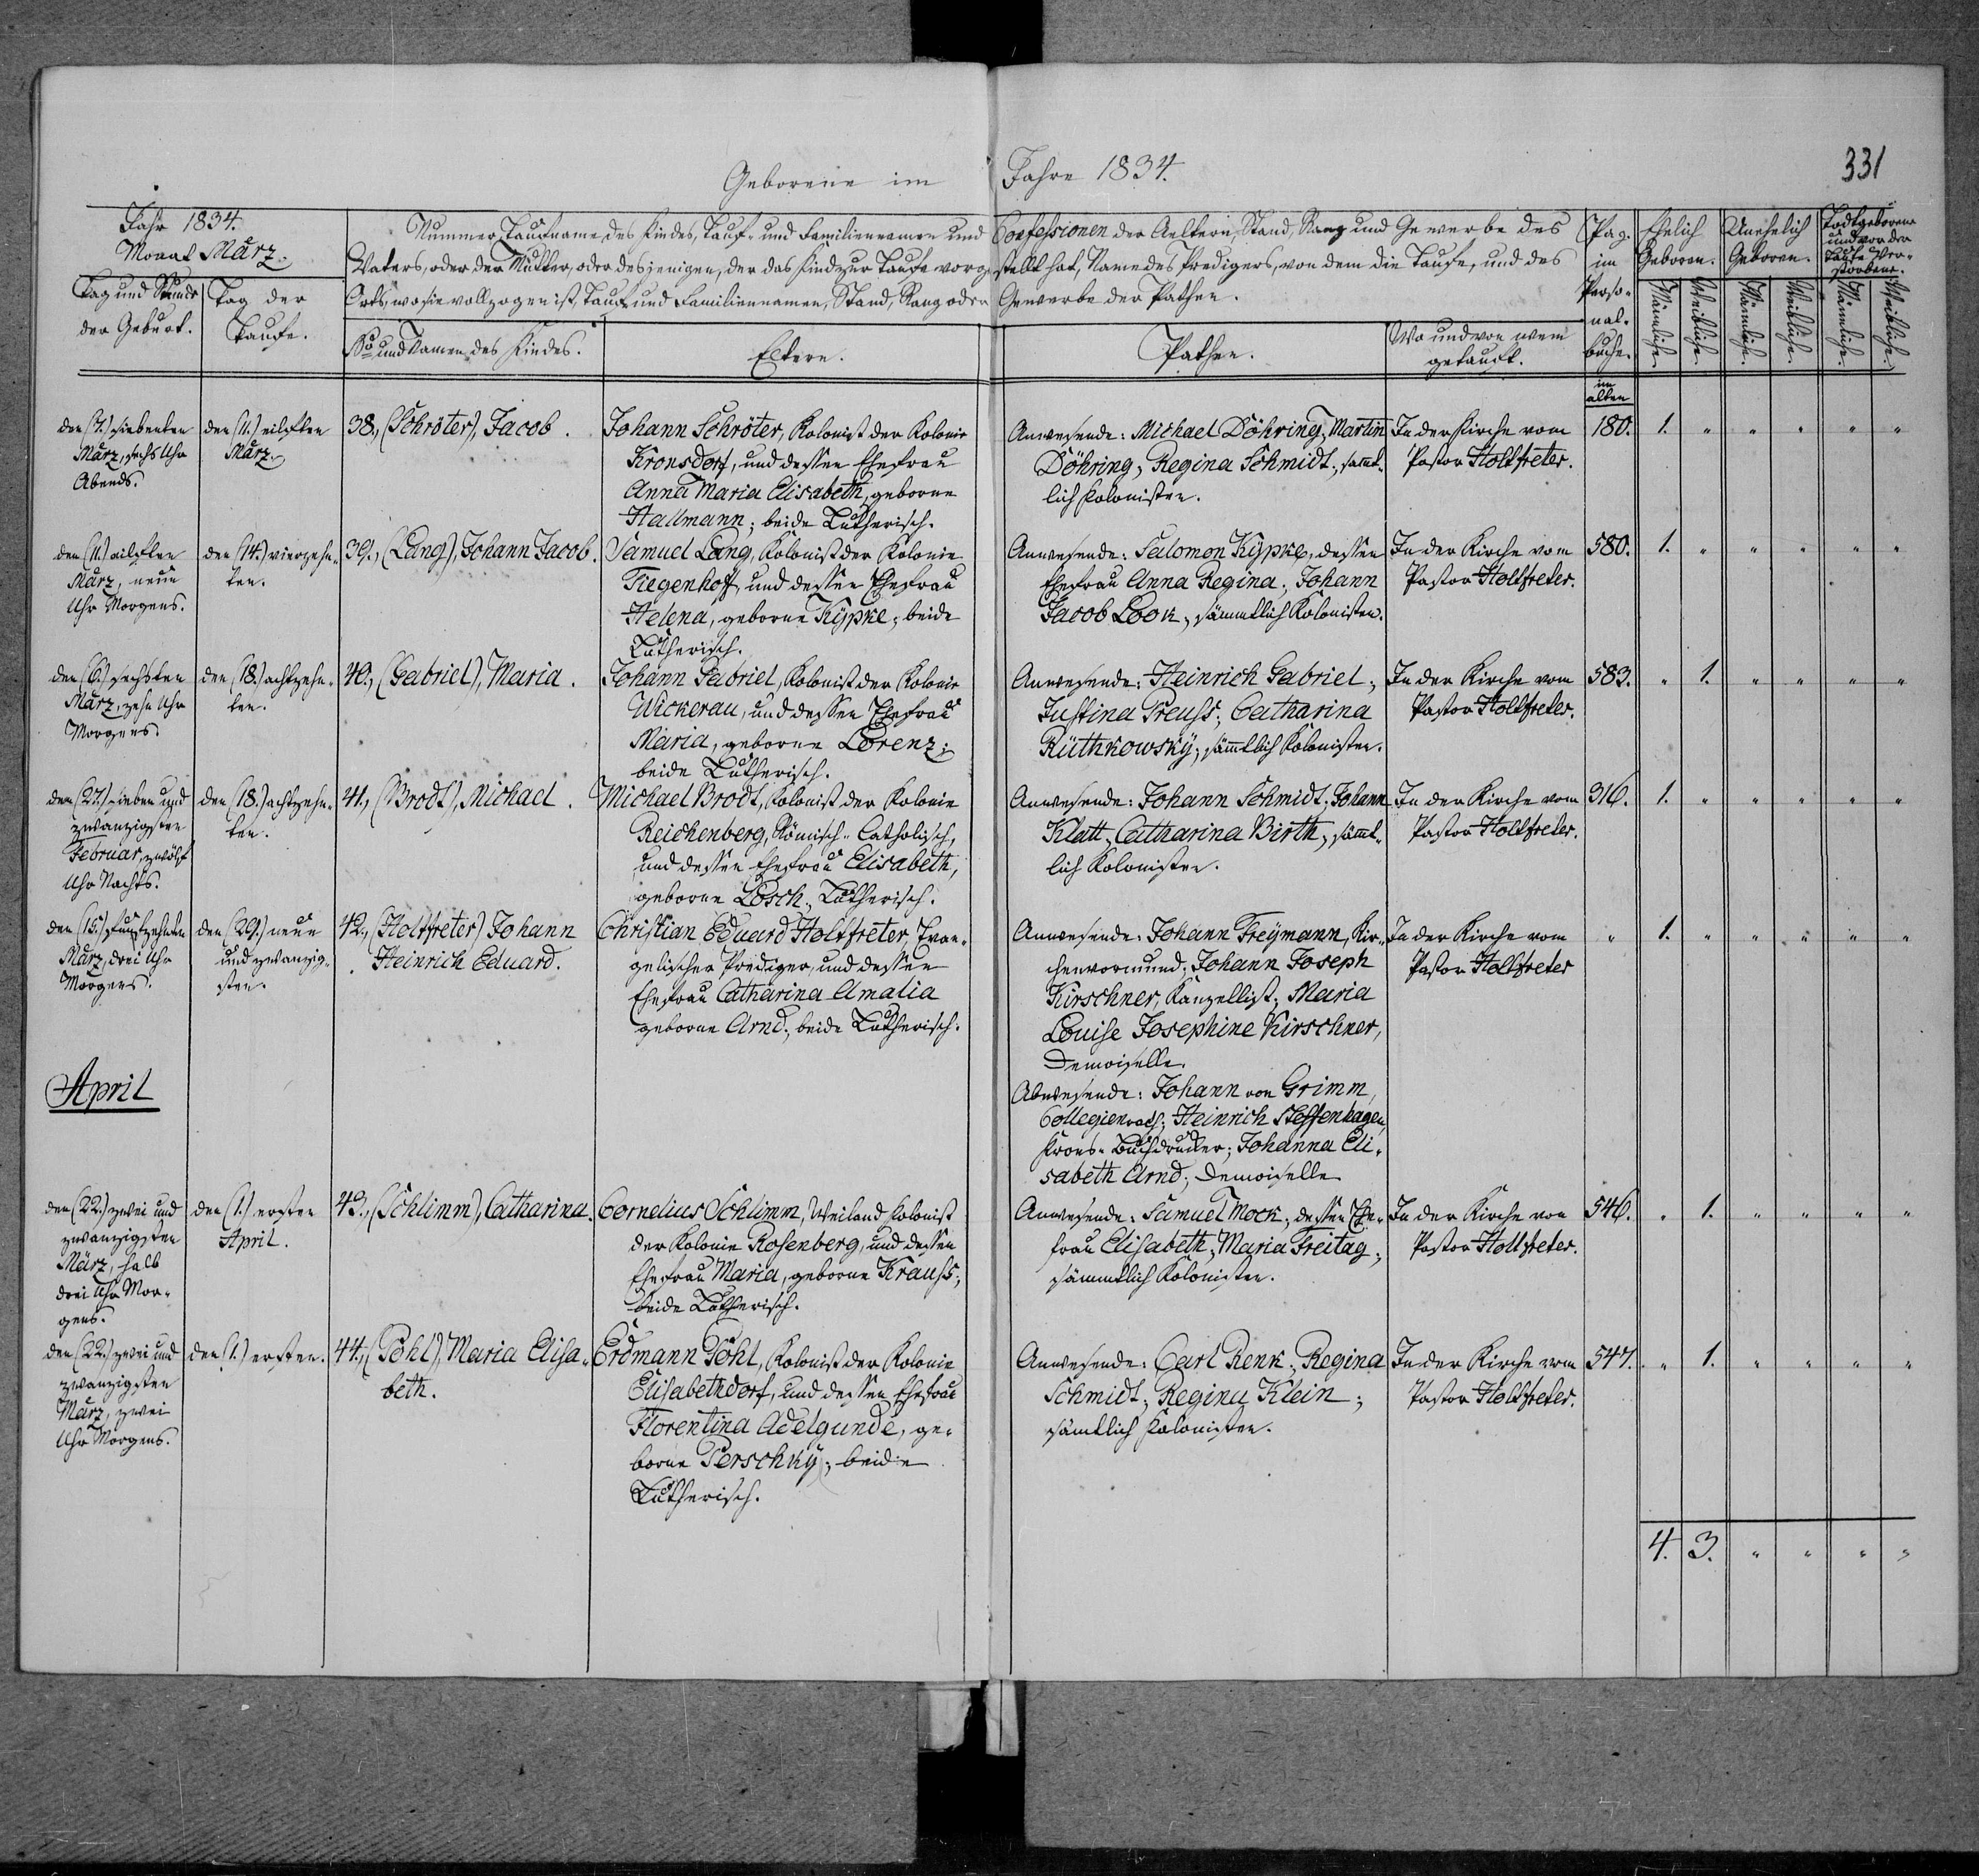 Geborene im Jahre 1834.
331
Jahr 1834.
Monat März.
Tag und Stunde
der Geburt.
Tag der
Taufe.
Nummer, Taufname des Kindes, Tauf- und Familiennamen und Confessionen der Aeltern, Stand, Rang und Gewerbe des
Vaters, oder der Mutter, oder desjenigen, der das Kind zur Taufe vorgestellt hat, Name des Predigers, von dem die Taufe, und des
Orts, wo sie vollzogen ist, Tauf- und Familiennamen, Stand, Rang oder Gewerbe der Pathen.
No und Namen des Kindes.
Eltern.
Pathen.
Wo und von wem
getauft.
Pag.
im
Perso-
nal-
buche.
Ehelich
Geboren.
Unehelich
Geboren.
Todtgeborene
und vor der
Taufe Ver-
storbene.
Männliche.
Weibliche.
Männliche.
Weibliche.
Männliche.
Weibliche.
im
alten
den (7.) siebenten
März, sechs Uhr
Abends.
den (11.) eilften
März.
38., (Schröter), Jacob.
Johann Schröter, Kolonist der Kolonie
Kronsdorf, und dessen Ehefrau
Anna Maria Elisabeth, geborne
Hallmann; beide Lutherisch.
Anwesende: Michael Döhring; Martin
Döhring; Regina Schmidt; sämmt-
lich Kolonisten.
In der Kirche vom
Pastor Holtfreter.
180. 1. " " " " "
den (11.) eilften
März, neun
Uhr Morgens.
den (14.) vierzehn-
ten.
39., (Lang), Johann Jacob.
Samuel Lang, Kolonist der Kolonie
Tiegenhoff, und dessen Ehefrau
Helena, geborne Kypke; beide
Lutherisch.
Anwesende: Salomon Kypke, dessen
Ehefrau Anna Regina; Johann
Jacob Look; sämmtlich Kolonisten.
In der Kirche vom
Pastor Holtfreter.
580. 1. " " " " "
den (6.) sechsten
März, zehn Uhr
Morgens.
den (18.) achtzehn-
ten.
40., (Gabriel), Maria.
Johann Gabriel, Kolonist der Kolonie
Wickerau, und dessen Ehefrau
Maria, geborne Lorenz;
beide Lutherisch.
Anwesende: Heinrich Gabriel;
Justina Preuss; Catharina
Rüthkowsky; sämtlich Kolonisten.
In der Kirche vom
Pastor Holtfreter.
583. " 1. " " " "
den (27.) sieben und
zwanzigsten
Februar, zwölf
Uhr Nachts.
den (18.) achtzehn-
ten.
41., (Brodt), Michael.
Michael Brodt, Kolonist der Kolonie
Reichenberg, Römisch-Catholisch,
und dessen Ehefrau Elisabeth,
geborne Losch; Lutherisch.
Anwesende: Johann Schmidt; Johann
Klatt; Catharina Birth; sämt-
lich Kolonisten.
In der Kirche vom
Pastor Holtfreter.
316. 1. " " " " "
den (15.) funfzehnten
März, drei Uhr
Morgens.
den (29.) neun
und zwanzig-
sten.
42., (Holtfreter) Johann
Heinrich Eduard.
Christian Eduard Holtfreter, Evan-
gelischer Prediger, und dessen
Ehefrau Catharina Amalia
geborne Arnd; beide Lutherisch.
Anwesende: Johann Freymann, Kir-
chenvormund; Johann Joseph
Kirschner, Kanzellist; Maria
Louise Josephine Kirschner,
Demoiselle.
Abwesende: Johann von Grimm,
Collegienrath; Heinrich Steffenhagen,
Krons-Buchdrucker; Johanna Eli-
sabeth Arnd; Demoiselle
In der Kirche vom
Pastor Holtfreter
" 1. " " " " "
April
den (22.) zwei und
zwanzigsten
März, halb
drei Uhr Mor-
gens.
den (1.) ersten
April.
43., (Schlimm), Catharina.
Cornelius Schlimm, Weiland Kolonist
der Kolonie Rosenberg, und dessen
Ehefrau Maria, geborne Krauss;
beide Lutherisch.
Anwesende: Samuel Mock; dessen Ehe-
frau Elisabeth; Maria Freitag;
sämmtlich Kolonisten.
In der Kirche von
Pastor Holtfreter.
546. " 1. " " " "
den (22.) zwei und
zwanzigsten
März, zwei
Uhr Morgens.
den (1.) ersten.
44., (Pöhl), Maria Elisa-
beth.
Erdmann Pöhl, Kolonist der Kolonie
Elisabethdorf, und dessen Ehefrau
Florentina Adelgunde, ge-
borne Perschky; beide
Lutherisch.
Anwesende: Carl Renk; Regina
Schmidt; Regina Klein;
sämtlich Kolonisten.
In der Kirche vom
Pastor Holtfreter.
547. " 1. " " " "
4. 3. " " " "